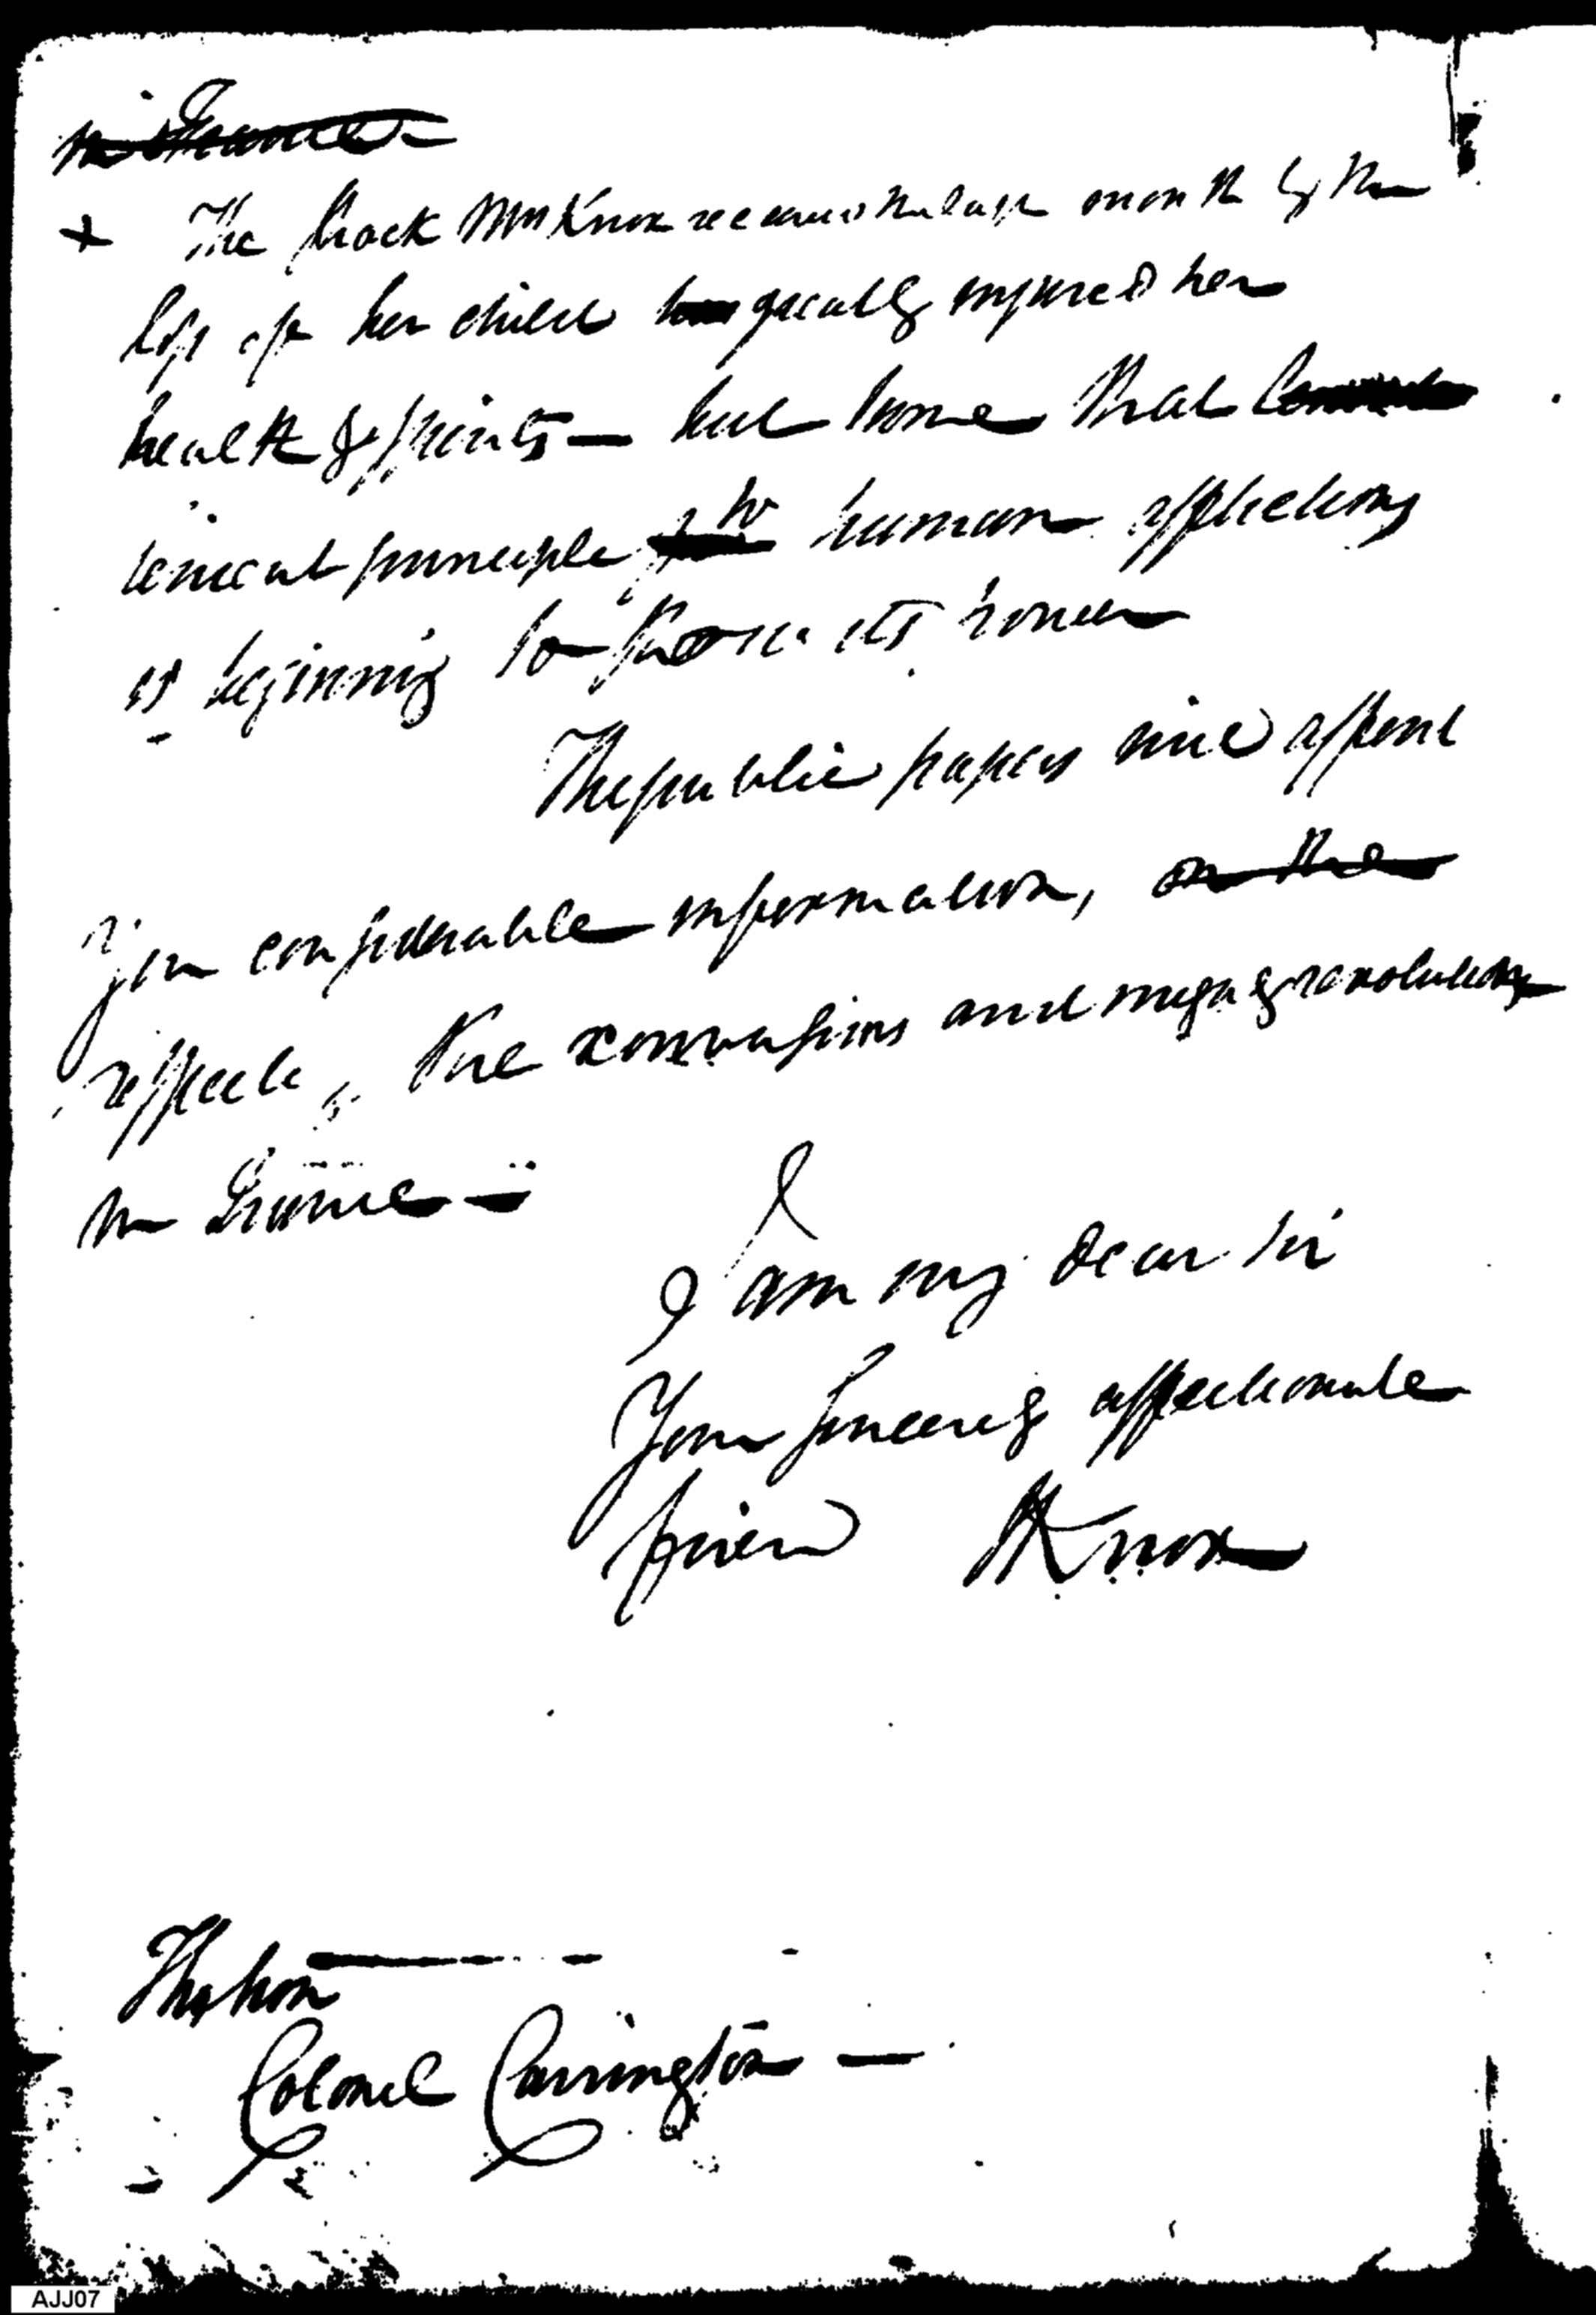 in France
+ The shock Mrs Knox received the last month by the
loss of her child has greatly injured her
health & spirits — but time that
lenient principle to human afflictions
is beginning to its
The public papers will afford
you considerable information, on the
respecting the convulsions and mighty revolutions
in France —
I am my dear sir
Your sincerely affectionate
friend HKnox
The hon
Colonel Carrington —
AJJ07